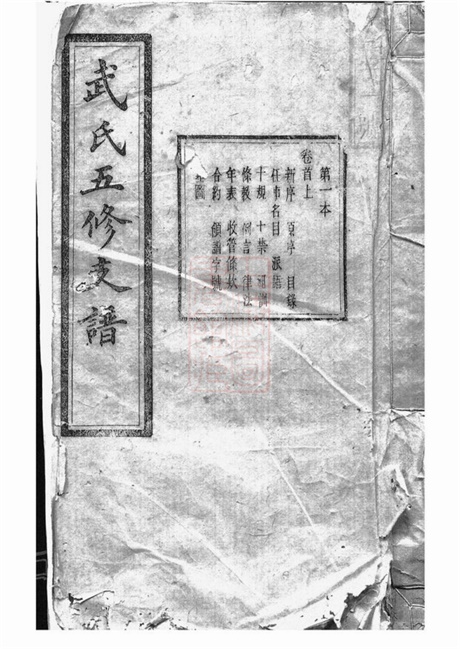 武氏五修支譜
第一本
卷首上
新序 原序 目錄
任事名目 派語
十規 十禁 祠規
條教 例言 律法
年表 收管條欵
合約 領譜字號